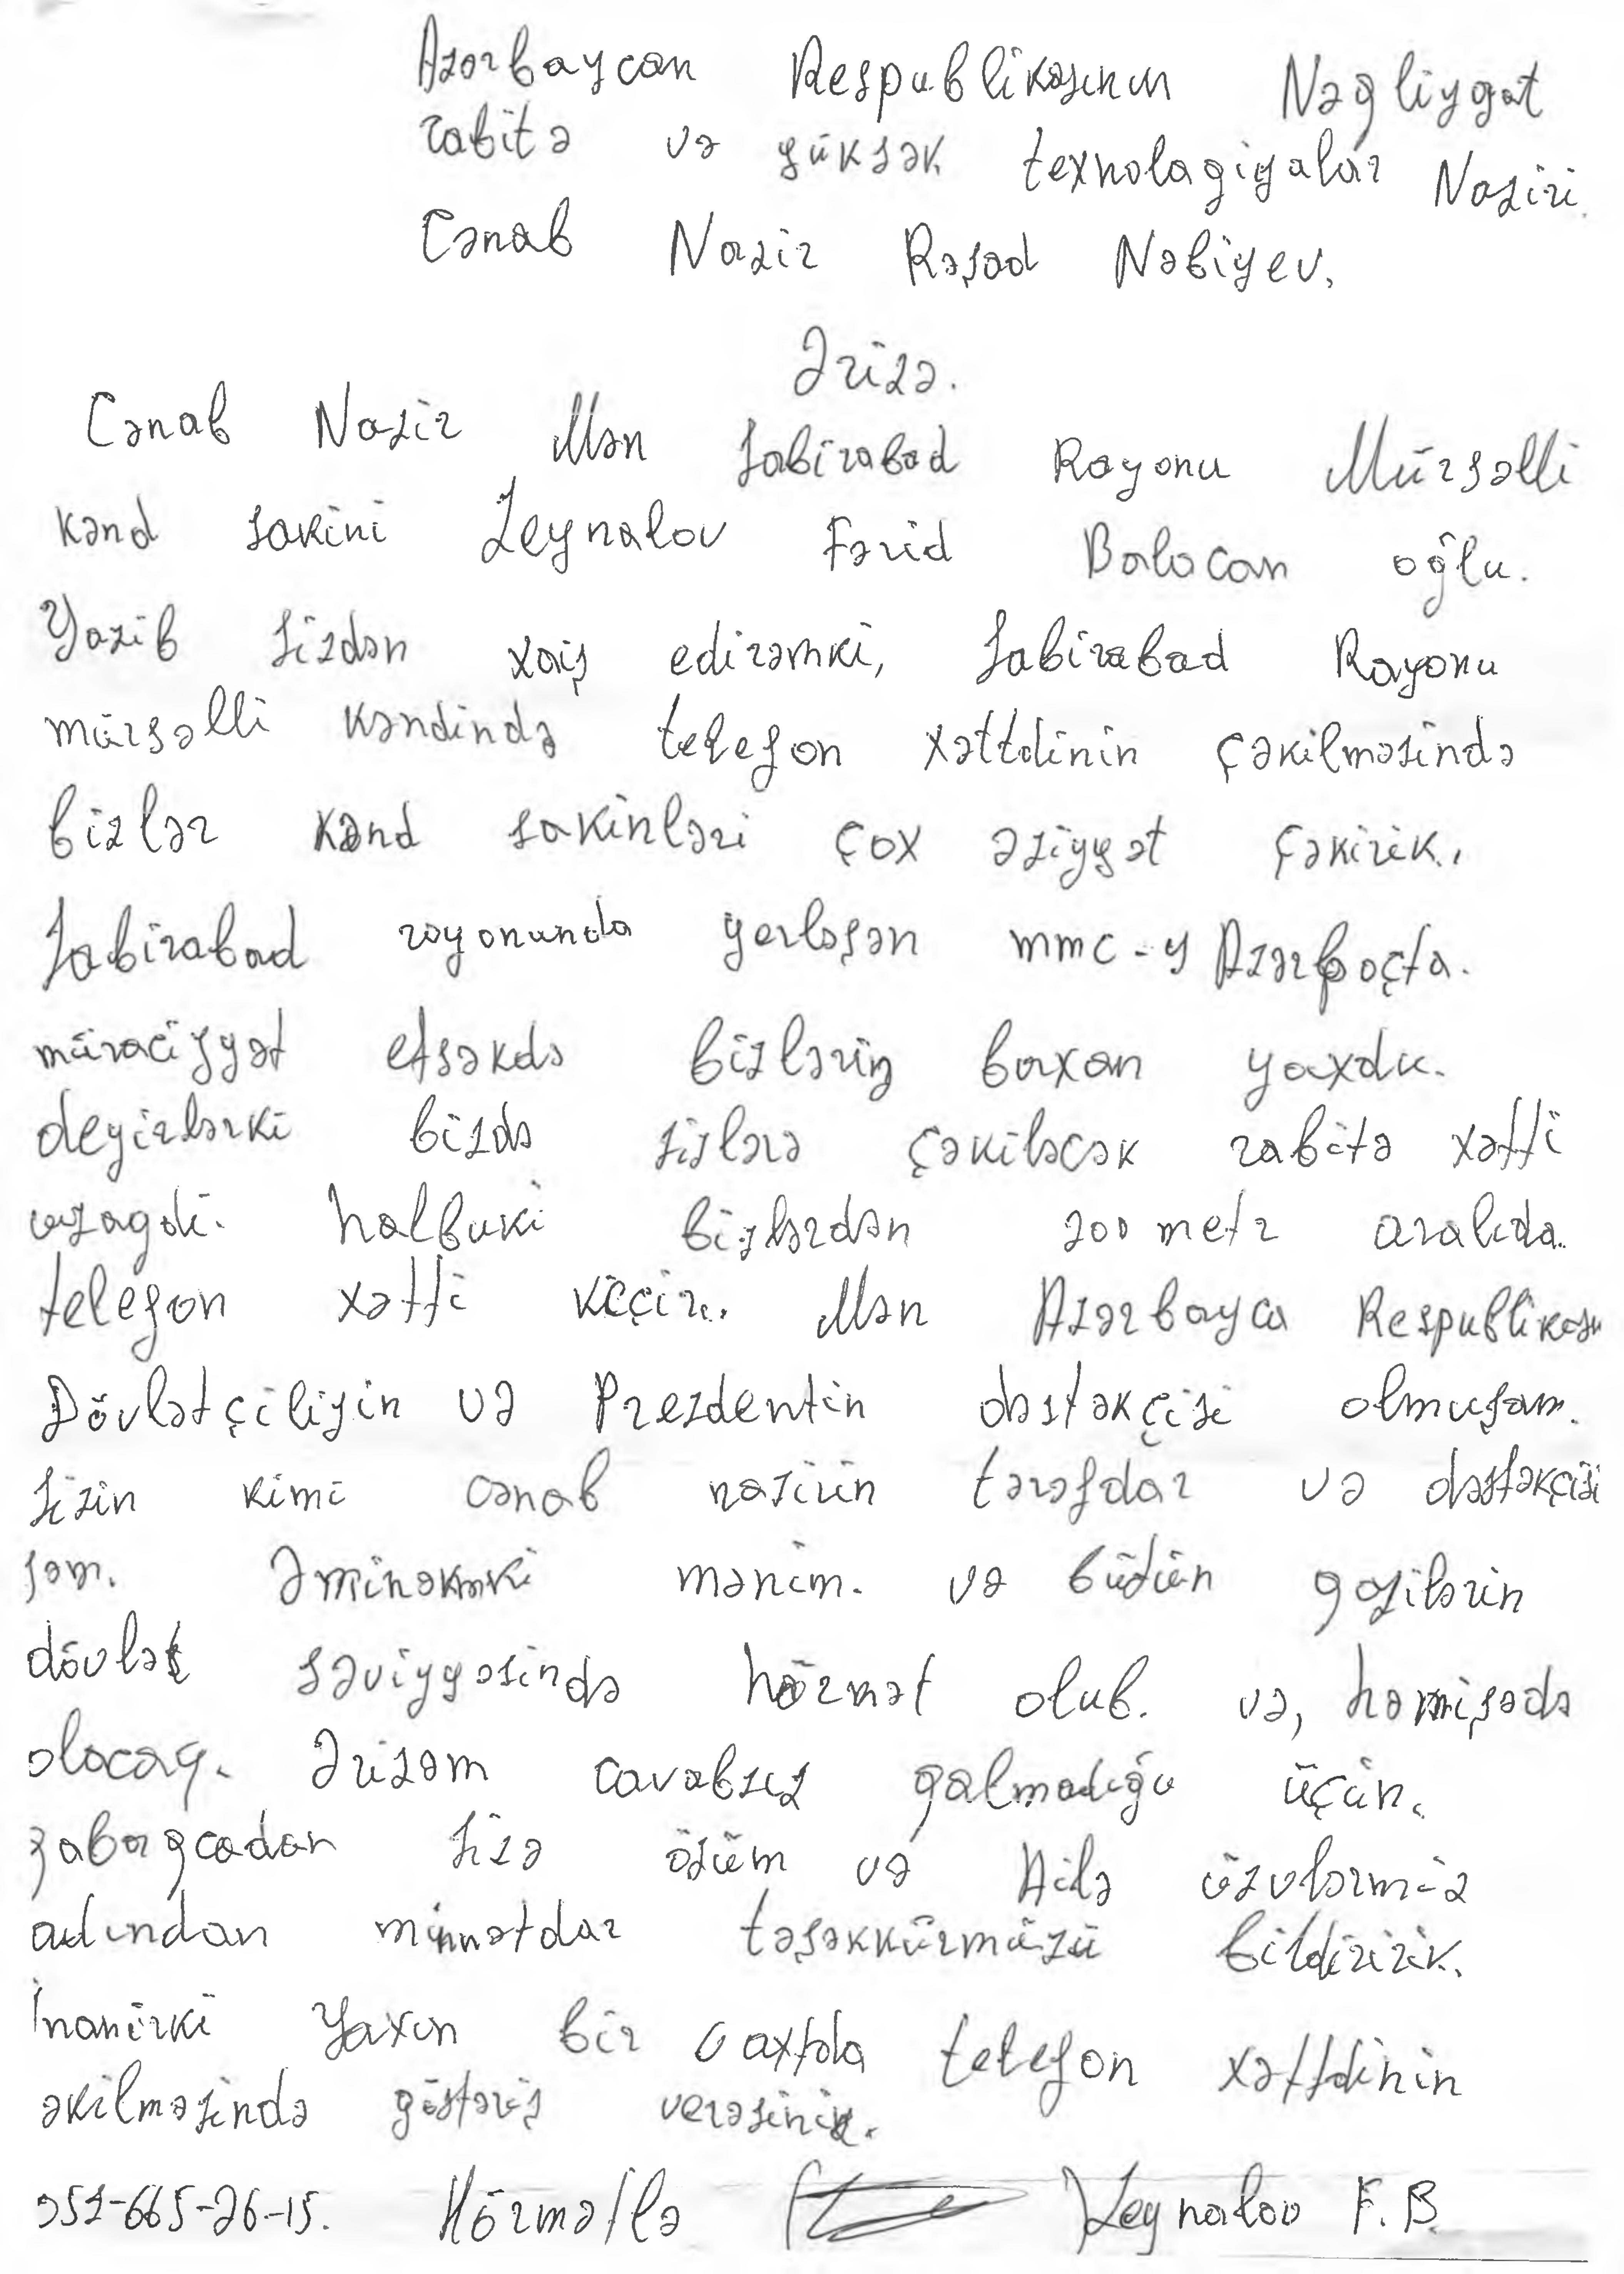 Azərbaycan Respublikasının Nəqliyyat
rabitə və yüksək texnolagiyalar Naziri
Cənab Nazir Rəşad Nəbiyev,
Ərizə.
Cənab Nazir Mən Sabirabad Rayonu Mürsəlli
kənd sakini Zeynalov Fərid Balacan oğlu.
Yazib Sizdən xaiş edirəmki, Sabirabad Rayonu
mürsəlli kəndində telefon xəttdinin çəkilməsində
bizlər kənd sakinləri çox əziyyət çəkirik.
Sabirabad rayonunda yerləşən mmc-y Azərpoçta.
müraciyyət etsəkdə bizləriŋ baxan yoxdu.
deyirlərki bizdə sizlərə çəkiləcək rabitə xətti
uzagdi. halbuki bizlərdən 200 metr aralıda.
telefon xətti kiçir. Mən Azərbayca Respublikası
Dövlətçiliyin və Prezdentin dəstəkçisi olmuşam.
Sizin kimi cənab nazirin tərəfdar və dəstəkçisi
səm. Əminəmki mənim. və büdün qazilərin
dövlət səviyyəsində hörmət olub. və, həmişədə
olacaq. Ərizəm cavabsız qalmadığı üçün.
qabaqcadan Sizə özüm və Ailə üzvlərmiz
adından minnətdar təşəkkürmüzü bildiririk.
İnanirki Yaxın bir vaxtda telefon xəttdinin
əkilməsində göstəriş verəsiniz.
051-665-26-15. Hörmətlə Zeynalov F.B.